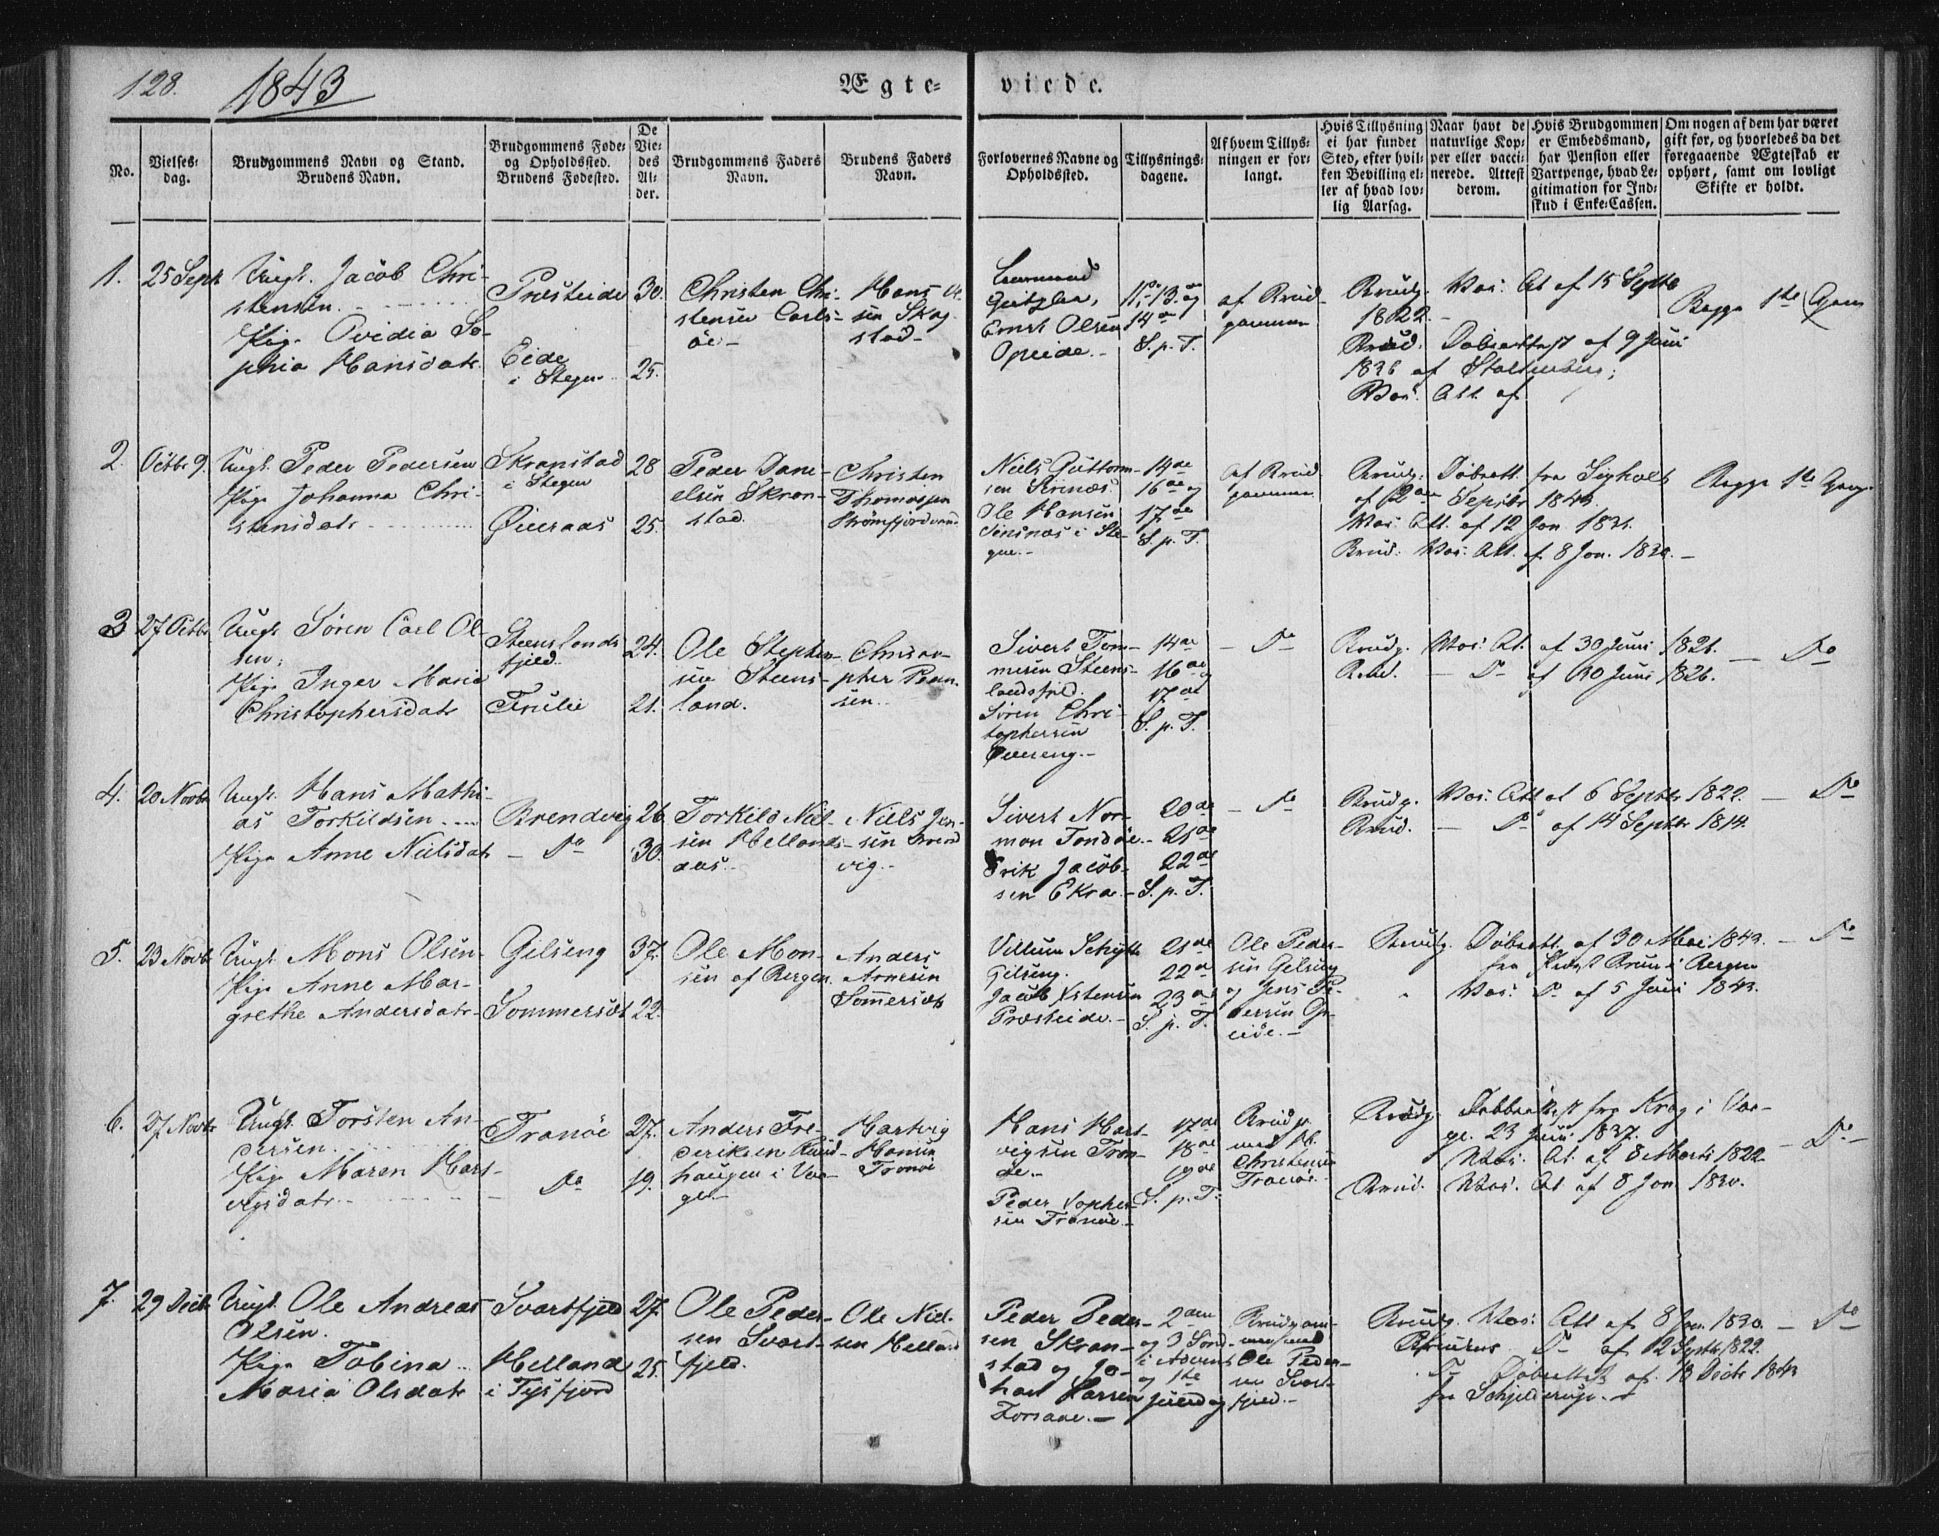 128.
1843
Ægte-
viede.
No.
Vielses-
dag.
Brudgommens Navn og Stand.
Brudens Navn.
Brudgommens Føde-
og Opholdssted.
Brudens Fødested.
De
Vie-
des
Al-
der.
Brudgommens Faders
Navn.
Brudens Faders
Navn.
Forlovernes Navne og
Opholdssted.
Tillysnings-
dagene.
Af hvem Tillys-
ningen er for-
langt.
Hvis Tillysning
ei har fundet
Sted, efter hvil-
ken Bevilling el-
ler af hvad lov-
lig Aarsag.
Naar havt de
naturlige Kop-
per eller vacci-
nerede. Attest
derom.
Hvis Brudgommen
er Embedsmand,
har Pension eller
Vartpenge, hvad Le-
gitimation for Ind-
skud i Enke-Cassen.
Om nogen af dem har været
gift før, og hvorledes da det
foregaaende Ægteskab er
ophørt, samt om lovligt
Skifte er holdt.
1.
25 Sept
Ungk. Jacob Chri-
stensen.
Pige Ovidia So-
phia Hansdatr
Præsteide
Eide
i Stegen
30.
25.
Christen Chri-
stensen Carls-
öe
Hans
sen Skog-
stad
Ernst Olsen
Opeide.
11te 13de og
14de
S. p. T.
af Brud-
gommen
Brudg. Vac. At af 15 Septb
1822.
Brud. Døbeattest af 9 Juni
1836 af Stoltenberg;
Vac. Att. af
Begge 1te Gang
2.
Octbr 9.
Ungk. Peder Pedersen
Pige Johanna Chri-
stensdatr
Skranstad
i Stegen
Øieraas
28
25.
Peder Dani-
elsen Skran-
stad.
Christen
Thomassen
Niels Guttorm-
sen
Ole Hansen
i Ste-
gen.
14de
16de og
17de
S. p. T.
af Brud
gommen
Brudg. Døbeatt. fra
af Septbr 1843.
Vac. Att. af 12 Jan. 1831.
Brud. Vac. Att. af 8 Jan. 1830.
Begge 1te Gang
3
27 Octbr
Ungk. Søren Carl Ol-
sen;
Pige Inger Marie
Christophersdatr
Steenslands
fjeld.
24.
21.
Ole Stephen-
sen Steens-
land.
Christo-
pher
sen.
Sivert Tom-
mesen Steens-
landsfjeld.
Søren Chri-
stophersen
14de
16de og
17de
S. p. T.
Do
Brudg. Vac. At. af 30 Juni 1826.
Brud. Do af 30 Juni 1826.
Do
4.
20 Novbr
Ungk. Hans Mathi-
as Torkildsen
Pige Anne Nielsdatr
Brendvig
Do
26.
30.
Torkild Niel-
sen Hellands-
aas.
Niels Jen-
sen Brend
vig.
Sivert Nor-
man Tondöe
Erik Jacob-
sen Ekra
20de
21de
22de
S. p. T.
Do
Brudg. Vac. Att af 6 Septbr 1822.
Brud. Do af 14 Septbr 1814.
Do
5.
23 Novbr
Ungk. Mons Olsen
Pige Anne Mar-
grethe Andersdatr
Gilseng
Sommersæt
37.
22.
Ole Mon-
sen af Bergen
Anders
Arnesen
Sommersæt
Villum Schytte
Gilseng.
Jacob Xstensen
Præsteide.
21de
22de
23de
S. p. T.
Ole Peder-
sen Gilseng
og Jens Pe-
dersen Op-
eide.
Brudg. Døbeatt. af 30 Mai 1843.
fra Bruun i Bergen
Vac. Do af 5 Juni 1843.
Do
6.
27 Novbr
Ungk. Torsten An-
dersen
Pige Maren Hart-
vigsdatr
Tranöe
Do
27.
19.
Anders Fre-
deriksen Rund-
haugen i Vaa-
ge
Hartvig
Hansen
Tranöe
Hans Hart-
vigsen Tran-
öe.
Peder Xopher-
sen Tranöe
17de
18de
19de
S. p. T.
Brudg.
med
Christensen
Tranöe.
Brudg. Døbeattest fra Krog i Vaa-
ge 23 Juni 1837.
Vac. At. af 8 Marts 1822
Brud. Vac. At af 8 Jan 1830.
Do
7.
29 Decbr
Ungk. Ole Andreas
Olsen.
Pige Tobina
Maria Olsdatr
Svartfjeld
Helland
i Tysfjord
27.
25.
Ole Peder-
sen Svart-
fjeld.
Ole Niel-
sen Helland
Peder Peder-
sen Skran-
stad og Jo-
han Larsen
Korsnæs.
2den
og 3 Sønd.
i Advent
og 1te
Juledag
Brudgom-
men med
Ole Peder-
sen Svart-
fjeld.
Brudg. Vac. Att af 8 Jan. 1830.
Brudens Do af 12 Septbr 1822.
Do Døbeattest af 13 Decbr 1843
fra Schjelderup.
Do